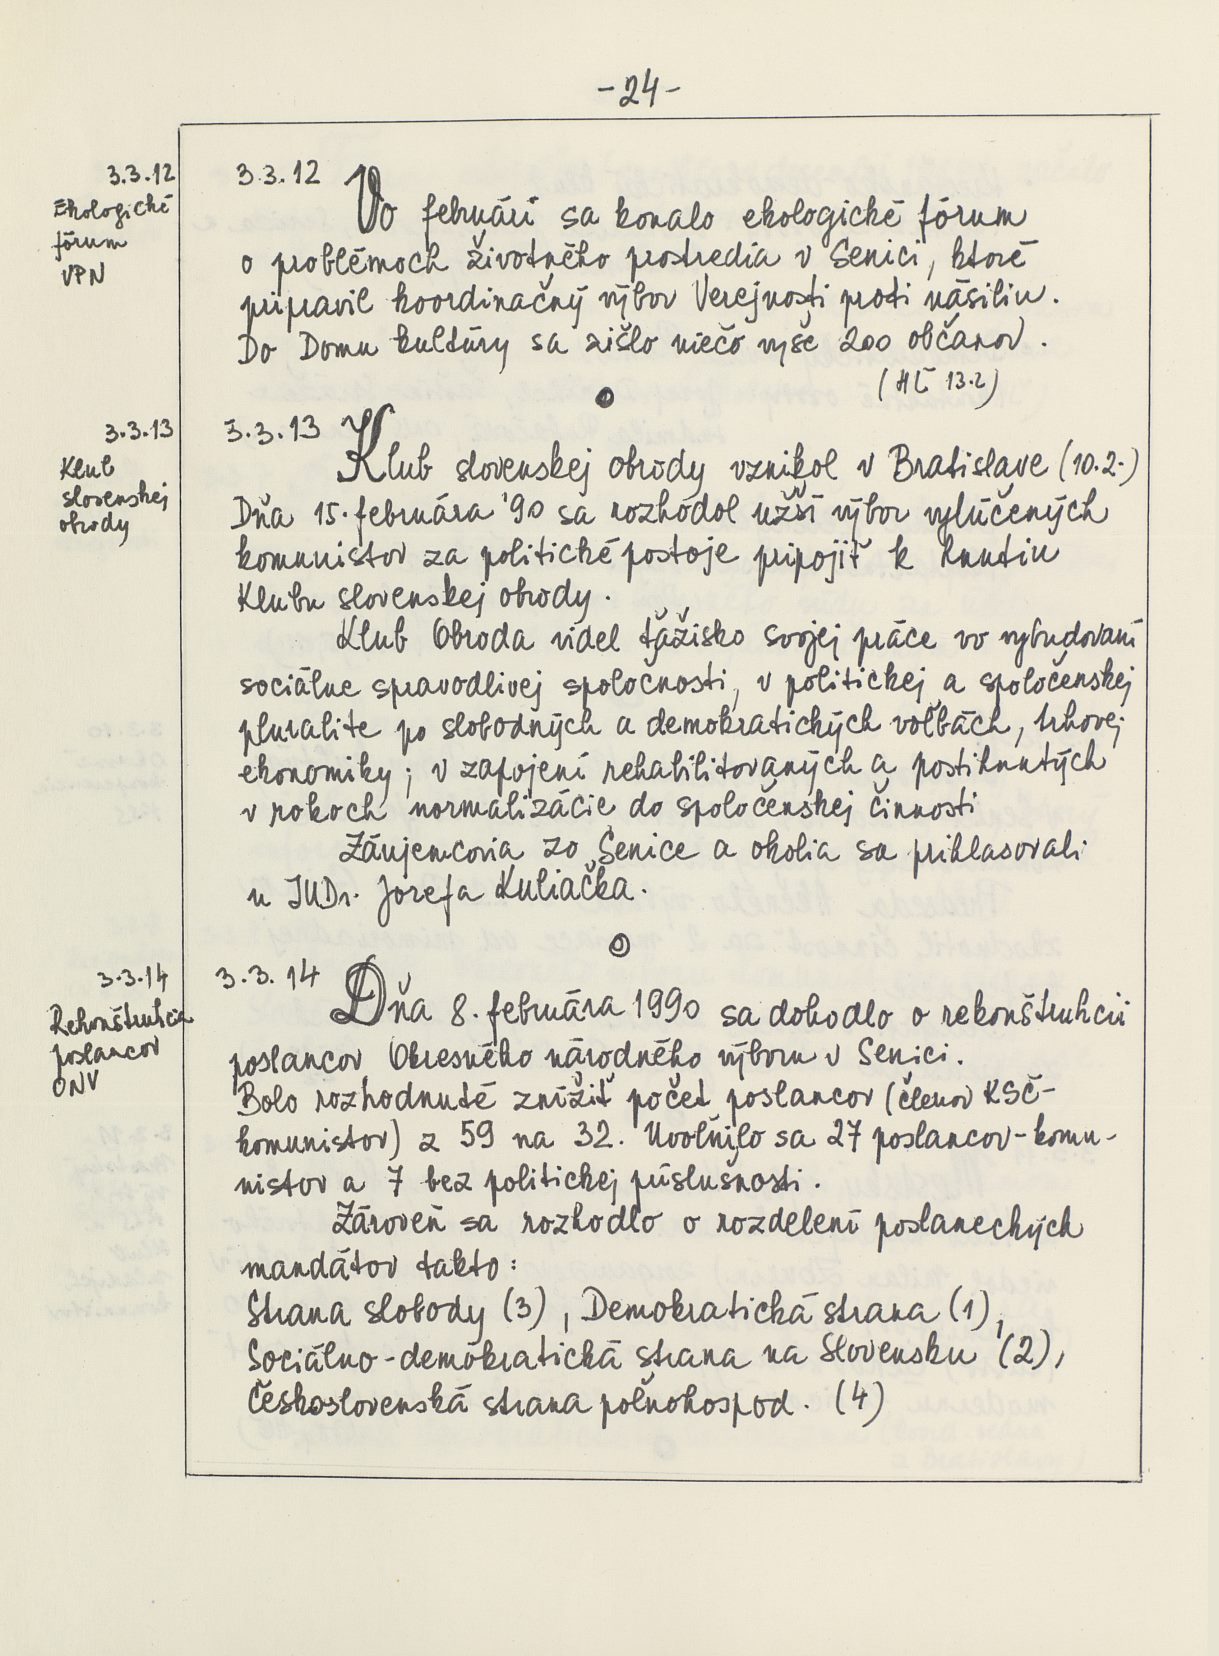 -24-
3.3.12
Ekologické
fórum
VPN
3.3.12
Vo februári sa konalo ekologické fórum
o problémoch životného prostredia v Senici, ktoré
pripravil koordinačný výbor Verejnosti proti násiliu.
Do Domu kultúry sa zišlo niečo vyše 200 občanov.
(HĽ 13.2)
3.3.13
Klub
slovenskej
obrody
3.3.13
Klub slovenskej obrody vznikol v Bratislave (10.2.)
Dňa 15. februára '90 sa rozhodol užší výbor vylúčených
komunistov za politické postoje pripojiť k hnutiu
Klubu slovenskej obrody.
Klub Obroda videl ťažisko svojej práce vo vybudovaní
sociálne spravodlivej spoločnosti, v politickej a spoločenskej
pluralite po slobodných a demokratických voľbách, trhovej
ekonomiky; v zapojení rehabilitovaných a postihnutých
v rokoch normalizácie do spoločenskej činnosti
Záujemcovia zo Senice a okolia sa prihlasovali
u JUDr. Jozefa Kuliačka.
3.3.14
Rekonštrukcia
poslancov
ONV
3.3.14
Dňa 8. februára 1990 sa dohodlo o rekonštrukcii
poslancov Okresného národného výboru v Senici.
Bolo rozhodnuté znížiť počet poslancov (členov KSČ-
komunistov) z 59 na 32. Uvoľnilo sa 27 poslancov-komu-
nistov a 7 bez politickej príslušnosti.
Zároveň sa rozhodlo o rozdelení poslaneckých
mandátov takto:
Strana slobody (3), Demokratická strana (1),
Sociálno-demokratická strana na Slovensku (2),
Československá strana poľnohospod. (4)